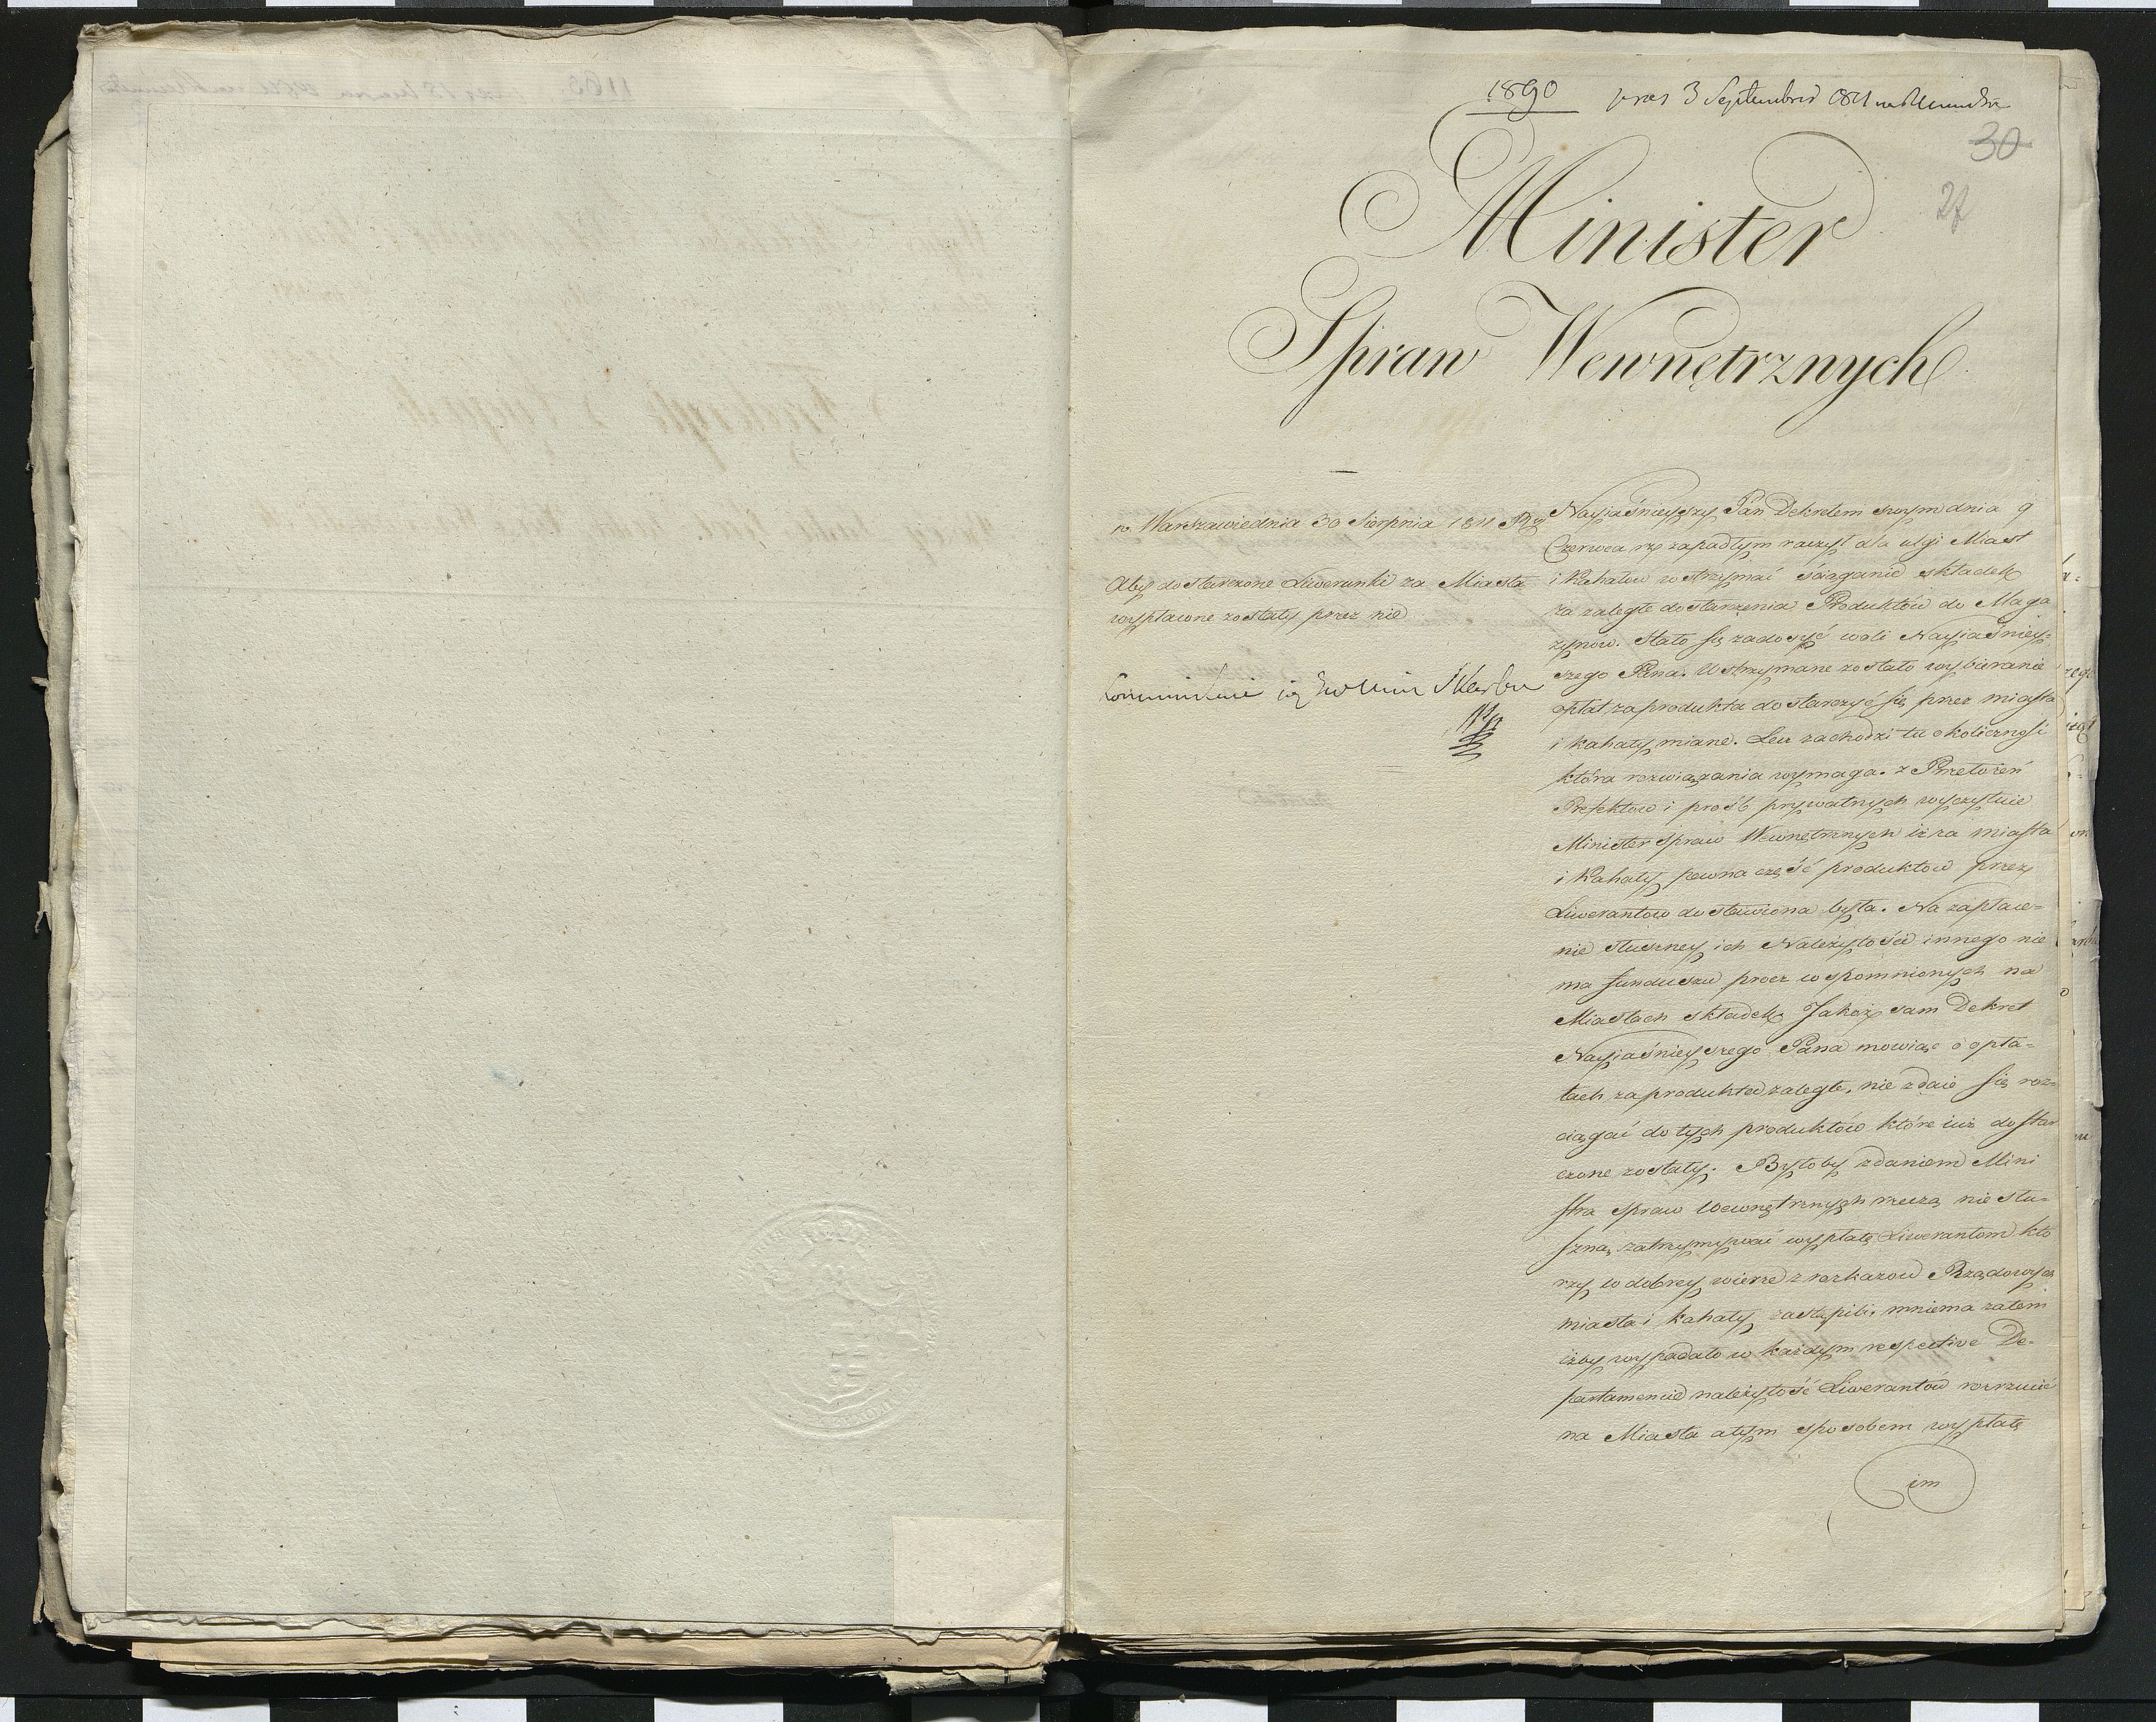 1890 pres 3 Septembris 1811
30
27
Minister
Spraw Wewnętrznych
w Warszawie dnia 30 Sierpnia 1811 Rku
Aby dostarczone Liwerunki za Miasta
wypłacone zostały przez nie
Skarbu
Nayiaśnieyszy Pan Dekretem swym dnia 9
Czerwca rb zapadłym raczył dla ulgi Miast
i Kahałow wstrzymać ściąganie składek
za zaległe dostarzenia Produktów do Maga
zynow. Stało się zadosyć woli Nayiaśniey-
szego Pana. Wstrzymane zostało wybieranie
opłat za produkta dostarczyć się przez miasta
i kahały miane. Lecz zachodzi tu okoliczność
która rozwiązania wymaga. z Przełożeń
Prefektow i prośb prywatnych wyczytuie
Minister Spraw Wewnętrznych iż za miasta
i Kahały pewna część produktow przez
Liwerantow dostawiona była. Na zapłace-
nie słuszney ich Należytości innego nie
ma funduszu procz wspomnionych na
Miastach składek Jakoż sam Dekret
Nayiaśnieyszego Pana mowiąc o opła-
tach za produkta zaległe, nie zdaie się roz-
ciągać do tych produktów które iuż dostar
czone zostały. Byłoby zdaniem Mini
stra spraw Wewnętrznych rzeczą niesłu-
szną, zatrzymywać wypłatę Liwerantom któ
rzy w dobrey wierze z rozkazow Rządowych
miasta i Kahały zastąpili. mniema zatem
iżby wypadało w każdym respective De-
partamencie należytość Liwerantow rozrzucić
na Miasta a tym sposobem wypłatę
im